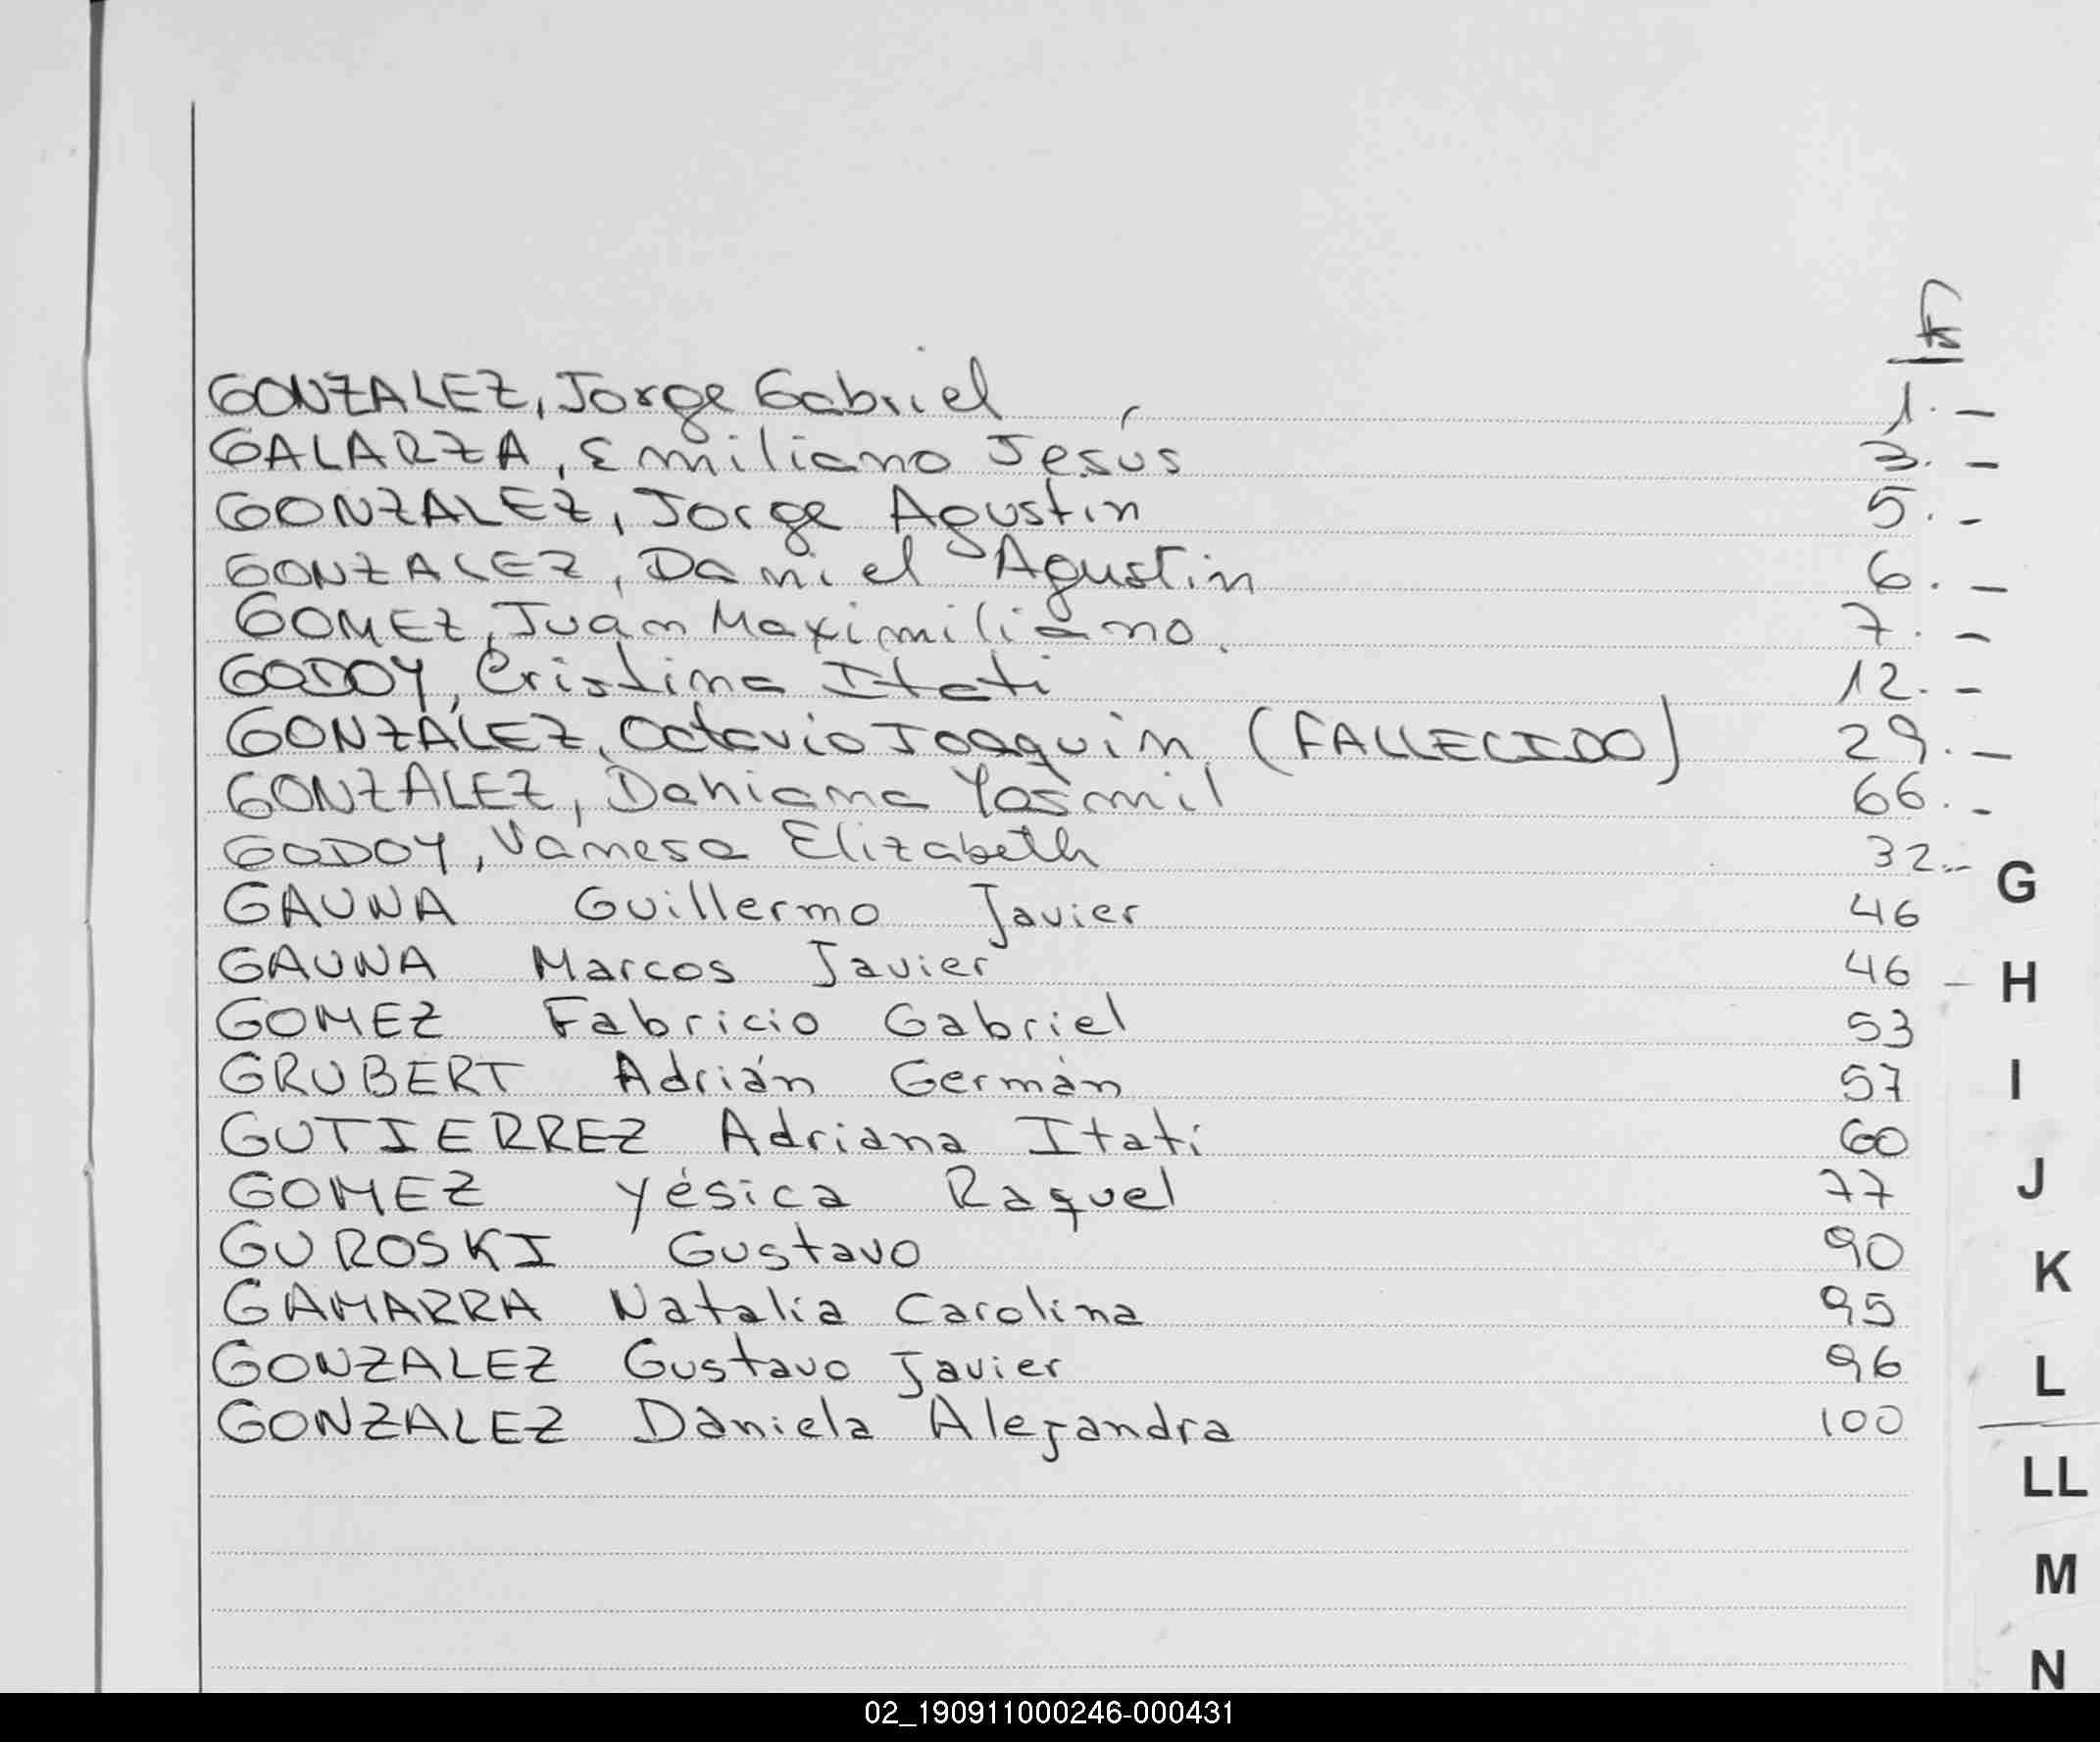 fs
GONZALEZ, Jorge Gabriel 1.-
GALARZA, Emiliano Jesús 3.-
GONZALEZ, Jorge Agustin 5.-
GONZALEZ, Daniel Agustin 6.-
GOMEZ, Juan Maximiliano. 7.-
GODOY, Cristina Itati 12.-
GONZALEZ, Octavio Joaquin (FALLECIDO) 29.-
GONZALEZ, Dahiana Yasmil 66.-
GODOY, Vanesa Elizabeth 32.-
GAUNA Guillermo Javier 46
GAUNA Marcos Javier 46 -
GOMEZ Fabricio Gabriel 53
GRUBERT Adrián Germán 57
GUTIERREZ Adriana Itatí 60
GOMEZ Yésica Raquel 77
GUROSKI Gustavo 90
GAMARRA Natalia Carolina 95
GONZALEZ Gustavo Javier 96
GONZALEZ Daniela Alejandra 100
G
H
I
J
K
L
LL
M
N
02_190911000246-000431